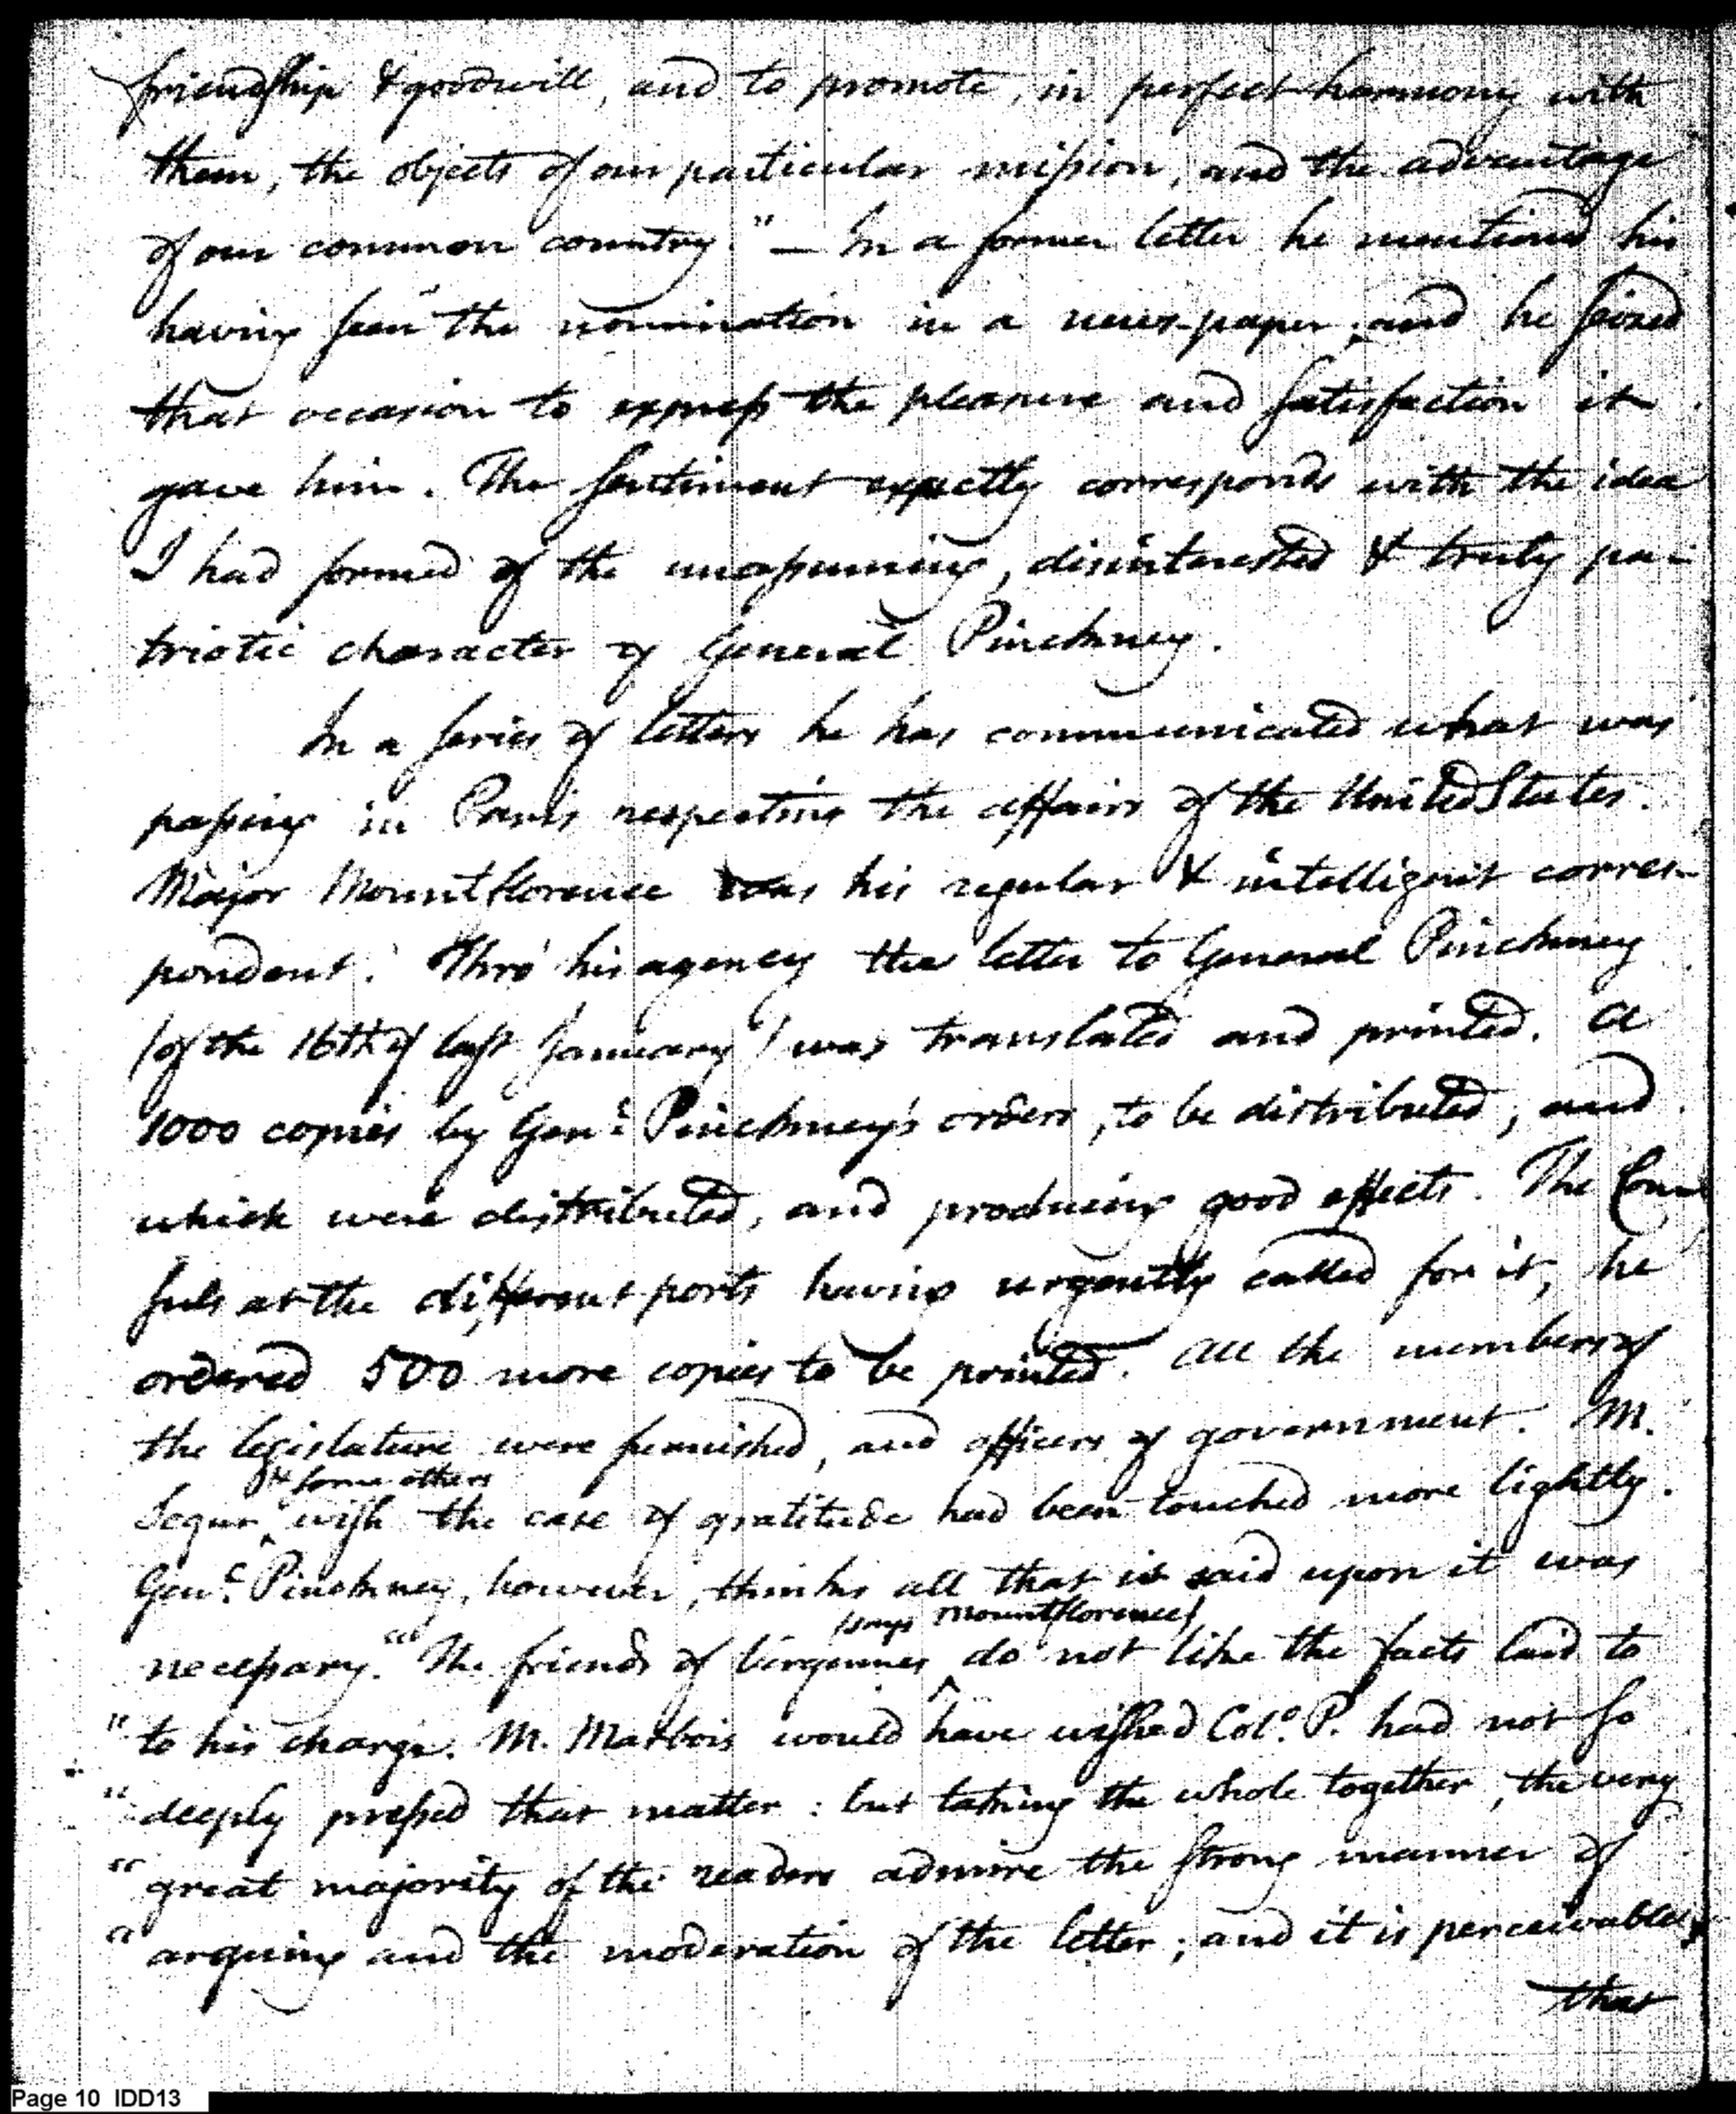 friendship & goodwill, and to promote, in perfect harmony with
them, the objects of our particular mission, and the advantage
of our common country." — In a former letter he mentioned his
having seen the nomination in a news-paper; and he seized
that occasion to express the pleasure and satisfaction it
gave him. The sentiment exactly corresponds with the idea
I had formed of the unassuming, disinterested & truly pa-
triotic character of General Pinckney.
In a series of letters he has communicated what was
passing in Paris respecting the affairs of the United States.
Major Mountflorence was his regular & intelligent corres-
pondent. Thro' his agency the letter to General Pinckney
(of the 16th of last January) was translated and printed. a
1000 copies by Genl. Pinckney's orders, to be distributed, and
which were distributed, and producing good effects. The Con
suls at the different ports having urgently called for it, he
ordered 500 more copies to be printed. All the members of
the legislature were furnished, and officers of government. M.
& some others
Segur wish the case of gratitude had been touched more lightly.
Genl. Pinckney, however, thinks all that is said upon it was
(says Mountflorence)
necessary. "The friends of Vergennes do not like the facts laid to
" to his charge. M. Marbois would have wished Colo. P. had not so
" deeply pressed that matter: but taking the whole together, the very
" great majority of the readers admire the strong manner of
" arguing and the moderation of the letter; and it is perceivable,
that
Page 10 IDD13